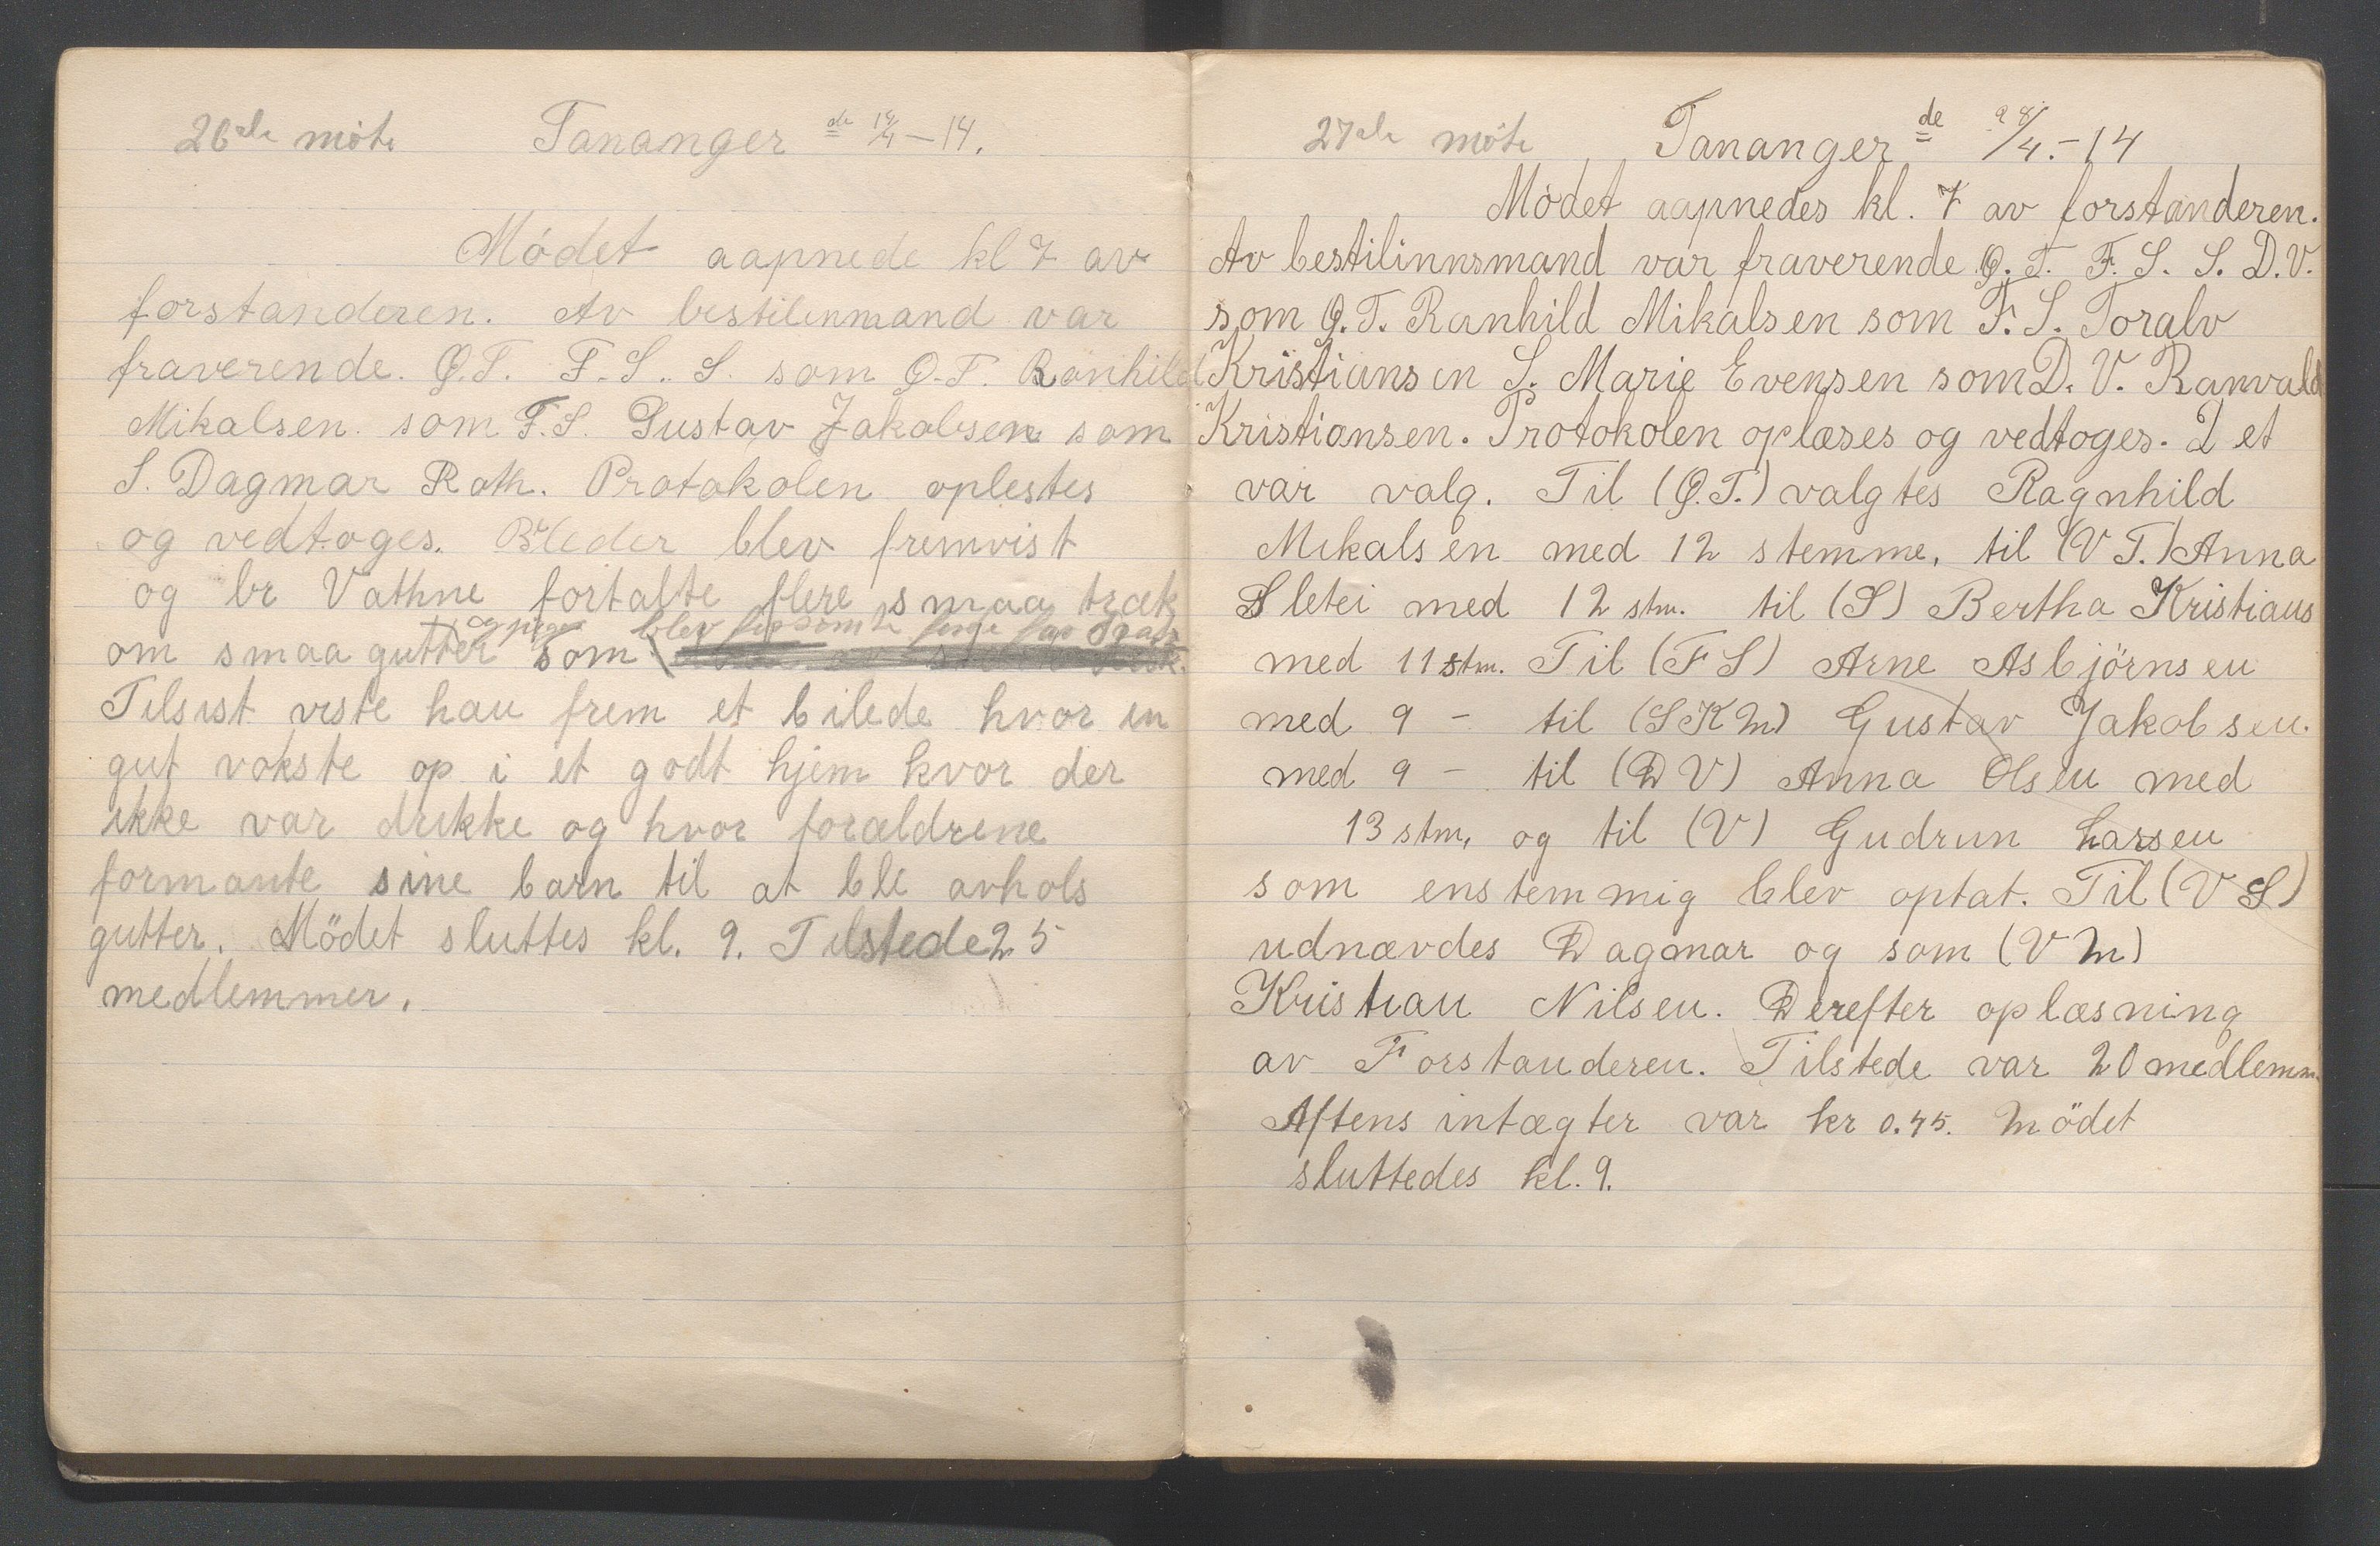 26de möte Tananger de 14/4-14.
Mödet aapnede kl 7 av
forstanderen. Av bestilenmand var
fraverende. Ö.T. F.S. S. som Ö.T. Ranhild
Mikalsen. som F.S. Gustav Jakobsen som
S. Dagmar Roth. Protokolen oplestes
og vedtoges. Bleder blev fremvist
og br Vathne fortalte flere smaa træk
og piger blev
om smaa gutter som
Tilsist viste han frem et bilede hvor en
gut vokste op i et godt hjem hvor der
ikke var drikke og hvor forældrene
formante sine barn til at bli avhols
gutter. Mödet sluttes kl. 9. Tilstede 25
medlemmer.
27de möte Tananger de 28/4.-14
Mödet aapnedes kl. 7 av forstanderen.
Av bestilinnsmand var fraverende Ö.T. F.S. S. D.V.
som Ö.T. Ranhild Mikalsen som F.S. Toralv
Kristiansen S. Marie Evensen som D.V. Ranvald
Kristiansen. Protokolen oplæses og vedtoges. Det
var valg. Til (Ö.T.) valgtes Ragnhild
Mikalsen med 12 stemme, til (V T.) Anna
Sletei med 12 stm. til (S) Bertha Kristians
med 11 stm. Til (F S) Arne Asbjörnsen
med 9 - til (S K M) Gustav Jakobsen.
med 9 - til (D V) Anna Olsen med
13 stm, og til (V) Gudrun Larsen
som enstemmig blev optat. Til (V S)
udnævdes Dagmar og som (V M)
Kristian Nilsen. Derefter oplæsning
av Forstanderen. Tilstede var 20 medlemm.
Aftens intægter var kr 0.45. Mödet
sluttedes kl. 9.